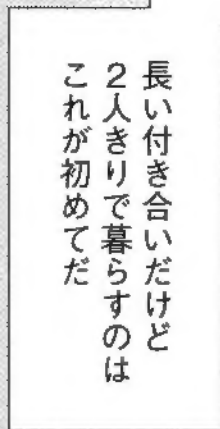 長い付き合いだけど
２人きりで暮らすのは
これが初めてだ